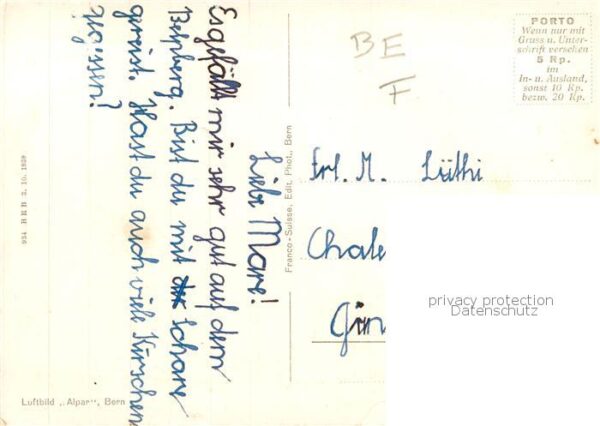 Liebe Mars!
Es gefällt mir sehr gut auf dem
Belpberg. Bist du mit der Schar
gereist. Hast du auch viele Kirschen
gegessen?
BE
F
PORTO
Wenn nur mit
Gruss u. Unter-
schrift versehen
5 Rp.
im
In- u. Ausland,
sonst 10 Rp.
bezw. 20 Rp.
Frl. M. Lüthi
Chale
Gim
privacy protection
Datenschutz
Franco-Suisse, Edit. Phot., Bern
954 BRB 3. 10. 1939
Luftbild „Alpar", Bern